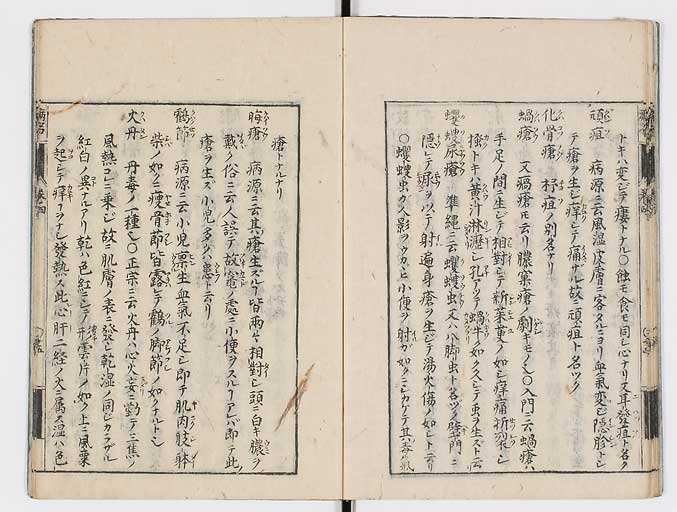 トキハ変ジテ瘻トナル○蝕モ食モ同ジ心ナリ又耳發疽ト名ク
頑疽　病源ニ云風温皮膚ニ客タルニヨリ血氣変ジ隠胗トシ
テ瘡ヲ生ジ痒シテ痛ナル故ニ頑疽ト名ヅク
化骨瘡　杼疽ノ別名ナリ
蝸瘡　又瘑瘡モ云リ膿窠瘡ノ劇キモノ也○入門ニ云蝸瘡ハ
手足ノ間ニ生ジテ相對シテ新茱萸ノ如シ痒痛折裂シ
搔トキハ黄汁淋瀝シ孔アツテ蝸牛ノ如ク久シテ虫ヲ生ズト云
蠼螋尿瘡　準縄ニ云蠼螋虫又ハ八脚虫ト名ヅク壁間ニ
隠レテ尿ヲ以テ射遍身瘡ヲ生ジテ湯火傷ノ如シト云リ
○蠼螋虫ハ人影ヲウカヾヒ小便ヲ射ガ如クニシカケテ其毒氣
瘡トナルナリ
瘡　病源ニ云其瘡生ズル皆両々相對シ頭ニ白キ膿ヲ
戴ク俗ニ云人誤テ故竈ノ處ニ小便ヲスルアレバ即チ此
瘡ヲ生ズ小児多クハ患ト云リ
鶴節　病源ニ云小児禀生血氣不足シ即チ肌肉肢躰
柴ノ如クニ痩骨節皆露シテ鶴ノ脚節ノ如クナルト也
火丹　丹毒ノ一種也○正宗ニ云火丹ハ心火妄ニ動テ三焦ノ
風熱コレニ乗ジ故ニ肌膚ノ表ニ發シ乾湿ノ同ジカラザル
紅白ノ異ナルアリ乾ハ色紅ニシテ形雲片ノ如ク上ニ風粟
ヲ起シテ痒ヲナシ發熱ス此心肝二経ノ火ニ属ス温ハ色